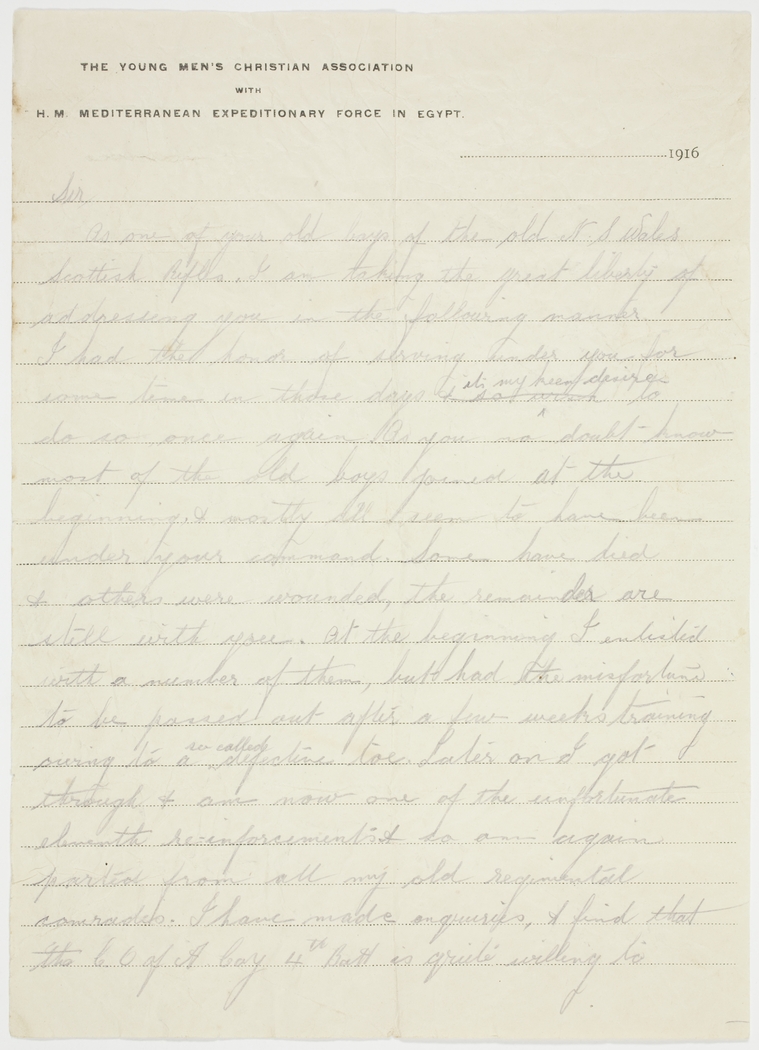 THE YOUNG MEN'S CHRISTIAN ASSOCIATION
WITH
H.M. MEDITERRANEAN EXPEDITIONARY FORCE IN EGYPT.
1916
Sir,
As one of your old boys of the old N. S Wales
Scottish Rifles, I am taking the great liberty of
addressing you in the following manner.
I had the honor of serving under you for
some time in those days & its my keen desire to
do so once again As you no doubt know
most of the old boys joined at the
beginning, & mostly all seem to have been
under your command. Some have died
& others were wounded, the remainder are
still with you. At the beginning I enlisted
with a number of them, but had the misfortune
to be passed out after a few weeks training
owing to a so called defective toe. Later on I got
through & am now one of the unfortunate
eleventh re-inforcements & so am again
parted from all my old regimental
comrades. I have made enquiries, & find that
the C O of A Coy 4th Batt is quite willing to